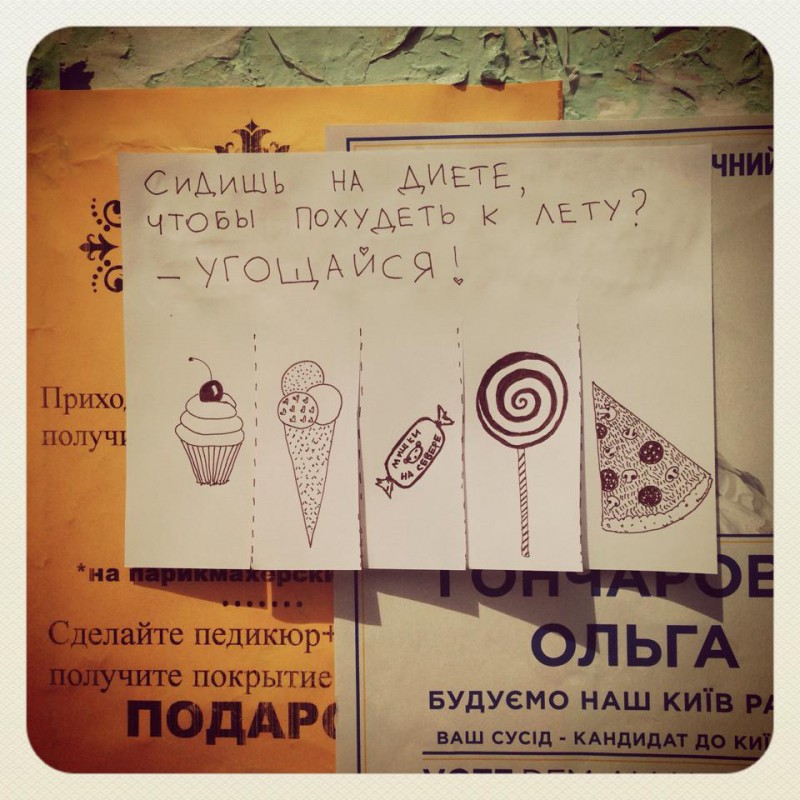 СИДИШЬ НА ДИЕТЕ,
ЧТОБЫ ПОХУДЕТЬ К ЛЕТУ?
– УГОЩАЙСЯ!
МИШКИ
НА СЕВЕРЕ
*на парикмахерск
Сделайте педикюр+
получите покрытие
ОЛЬГА
БУДУЄМО НАШ КИЇВ
ВАШ СУСІД - КАНДИДАТ ДО